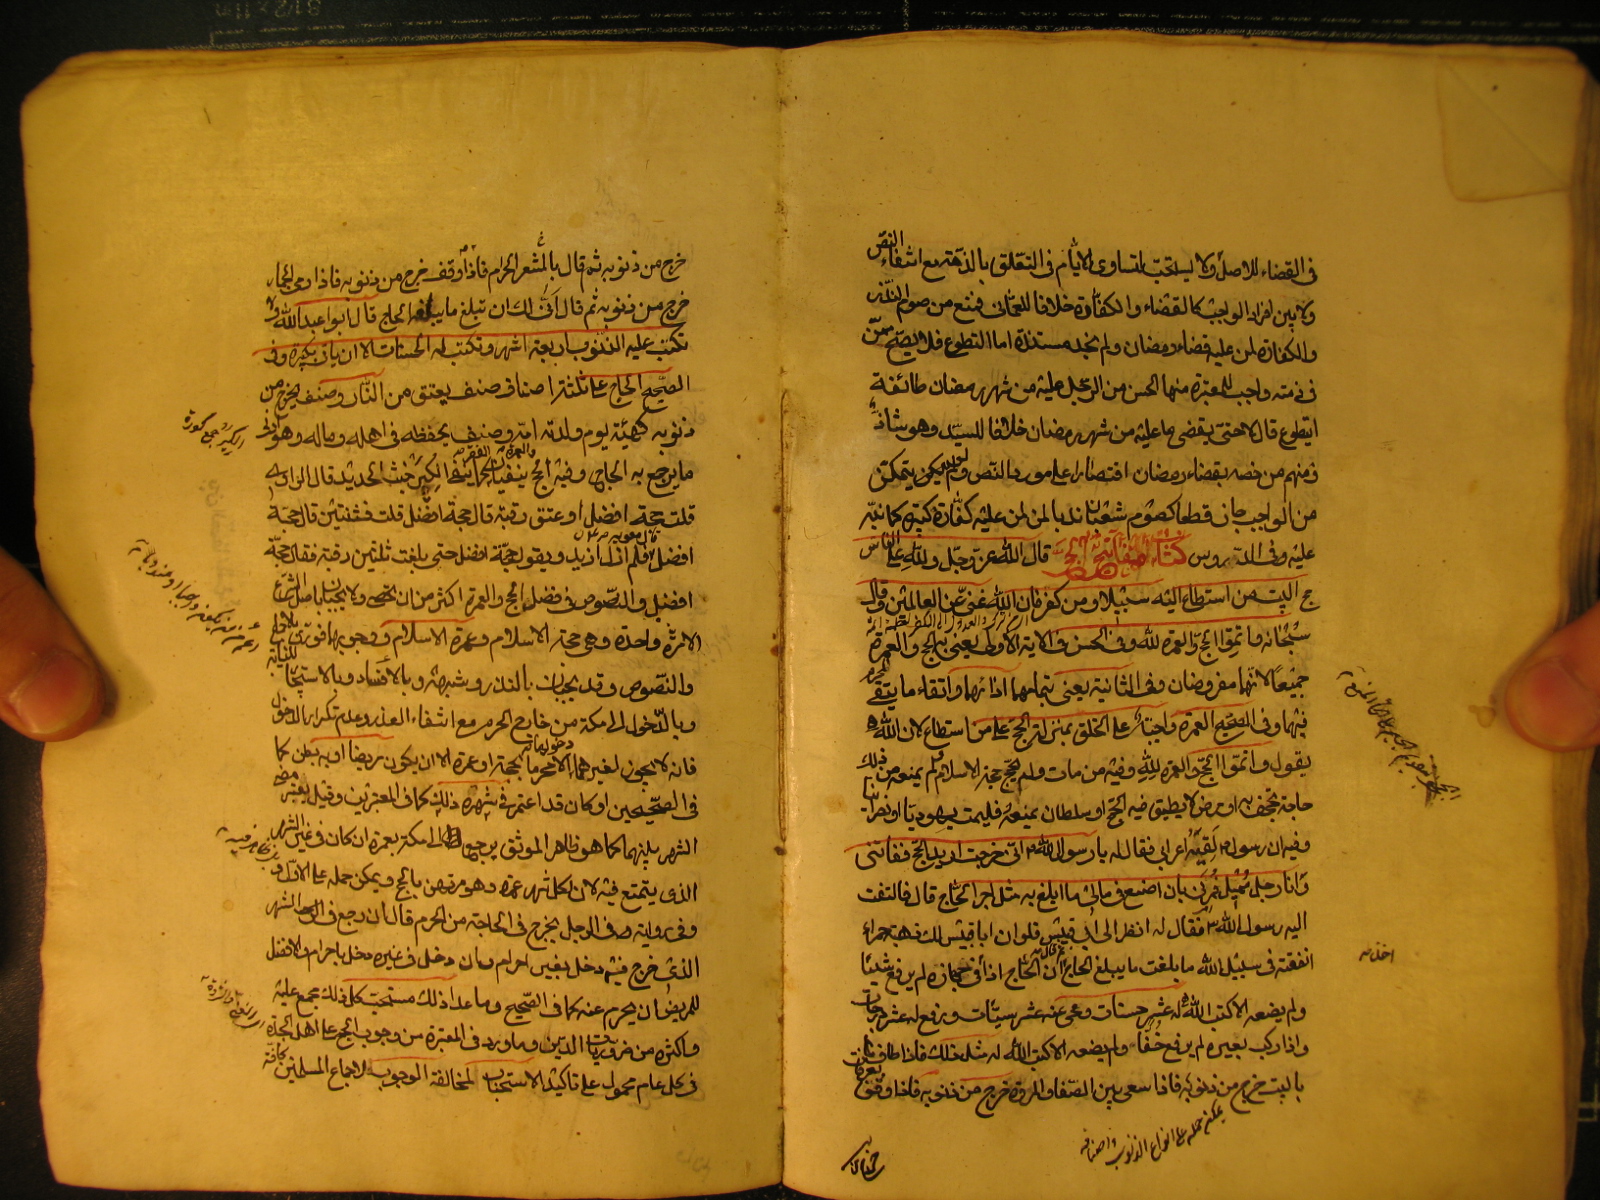 في القضاء للاصل ولا يستحب لتساوى الايام فى التعلق بالذمة مع انتفاء النص
ولا بين افراد الواجب كالقضاء والكفارة خلافا للعماني فمنع من صوم النذر
والكفارة لمن عليه قضاء رمضان ولم نجد مستنده اما التطوع فلا يصح ممن
في ذمته واجب للمعتبرة منها الحسن عن الرجل عليه من شهر رمضان طائفة
ايتطوع قال لا حتى يقضى ما عليه من شهر رمضان خلافا للسيد وهو شاذ
ومنهم من خصه بقضاء رمضان اقتصارا على مورد النص ولو لم يكن يتمكن
من الواجب جاز قطعا كصوم شعبان ندبا لمن عليه كفارة كبيرة كما نبه
عليه فى الدروس كتاب الحج قال الله عز وجل ولله على الناس
حج البيت من استطاع اليه سبيلا ومن كفر فان الله غنى عن العالمين وقال
سبحانه واتموا الحج والعمرة لله وفى الحسن فى الاية الاولى يعنى به الحج والعمرة
جميعا لانهما مفروضان وفى الثانية يعنى بتمامهما اداءهما واتقاء ما يتقى المحرم
فيهما وفى الصحيح العمرة واجبة على الخلق بمنزلة الحج على من استطاع لان الله
يقول واتموا الحج والعمرة لله وفيه من مات ولم يحج حجة الاسلام ولم يمنعه من ذلك
حاجة تجحف به او مرض لا يطيق فيه الحج او سلطان يمنعه فليمت يهوديا او نصرانيا
وفيه ان رسول الله لقيه اعرابي فقال له يا رسول الله انى خرجت اريد الحج ففاتنى
وانا رجل مميل فمرنى بان اصنع فى مالى ما ابلغ به مثل اجر الحاج قال فالتفت
اليه رسول الله فقال له انظر الى ابى قبيس فلو ان ابا قبيس لك ذهبة حمراء
انفقته فى سبيل الله ما بلغت ما يبلغ الحاج ثم قال ان الحاج اذا اخذ فى جهازه لم يرفع شيئا
ولم يضعه الا كتب الله له عشر حسنات ومحى عنه عشر سيئات ورفع له عشر درجات
واذا ركب بعيره لم يرفع خفا ولم يضعه الا كتب الله له مثل ذلك فاذا طاف
بالبيت خرج من ذنوبه فاذا سعى بين الصفا والمروة خرج من ذنوبه فاذا وقف بعرفات
يمكن حمله على انواع الذنوب واصنافه
خرج من ذنوبه ثم قال بالمشعر الحرام فاذا وقف خرج من ذنوبه فاذا رمى الجمار
خرج من ذنوبه ثم قال انى لك ان تبلغ ما يبلغ الحاج قال ابو عبد الله ولا
تكتب عليه الذنوب اربعة اشهر وتكتب له الحسنات الا ان ياتى بكبيرة وفى
الصحيح الحاج على ثلثة اصناف صنف يعتق من النار وصنف يخرج من
ذنوبه كهيئة يوم ولدته امه وصنف يحفظه فى اهله وماله وهو ادنى
ما يرجع به الحاج وفيه الحج والعمرة ينفيان الفقر كما ينفى الكير خبث الحديد قال الراوى
قلت حجة افضل او عتق رقبة قال حجة افضل قلت فثنتين قال حجة
افضل فلم ازل ازيد ويقول حجة افضل حتى بلغت ثلثين رقبة فقال حجة
افضل والنصوص فى فضل الحج والعمرة اكثر من ان تحصى ولا يجبان باصل الشرع
الا مرة واحدة وهى حجة الاسلام وعمرة الاسلام ووجوبهما فورى
والنصوص وقد يجبان بالنذر وشبهه وبالافساد وبالاستيجار
وبالدخول الى مكة من خارج الحرم مع انتفاء العذر وعدم تكرار الدخول
فانه لا يجوز لغيرهما دخولها الا محرما بحجة او عمرة الا ان يكون مريضا او به بطن كما
فى الصحيحين او كان قد اعتمر فى شهره ذلك كما فى المعتبرين وقيل يعتبر مضى
الشهر بينهما كما هو ظاهر الموثق يرجع الى مكة بعمرة ان كان فى غير الشهر
الذى يتمتع فيه لان لكل شهر عمرة وهو مرتهن بالحج ويمكن حمله على الاول
وفى رواية وفى الرجل يخرج فى الحاجة من الحرم قال ان رجع فى الشهر
الذى خرج فيه دخل بغير احرام وان دخل فى غيره دخل باحرام والافضل
للمريض ان يحرم عنه كما فى الصحيح وما عدا ذلك مستحب كل ذلك مجمع عليه
واكثره من ضروريات الدين وما ورد فى المعتبرة من وجوب الحج على اهل الجدة
فى كل عام محمول على تاكيد الاستحباب لمخالفة الوجوب لاجماع المسلمين كافة